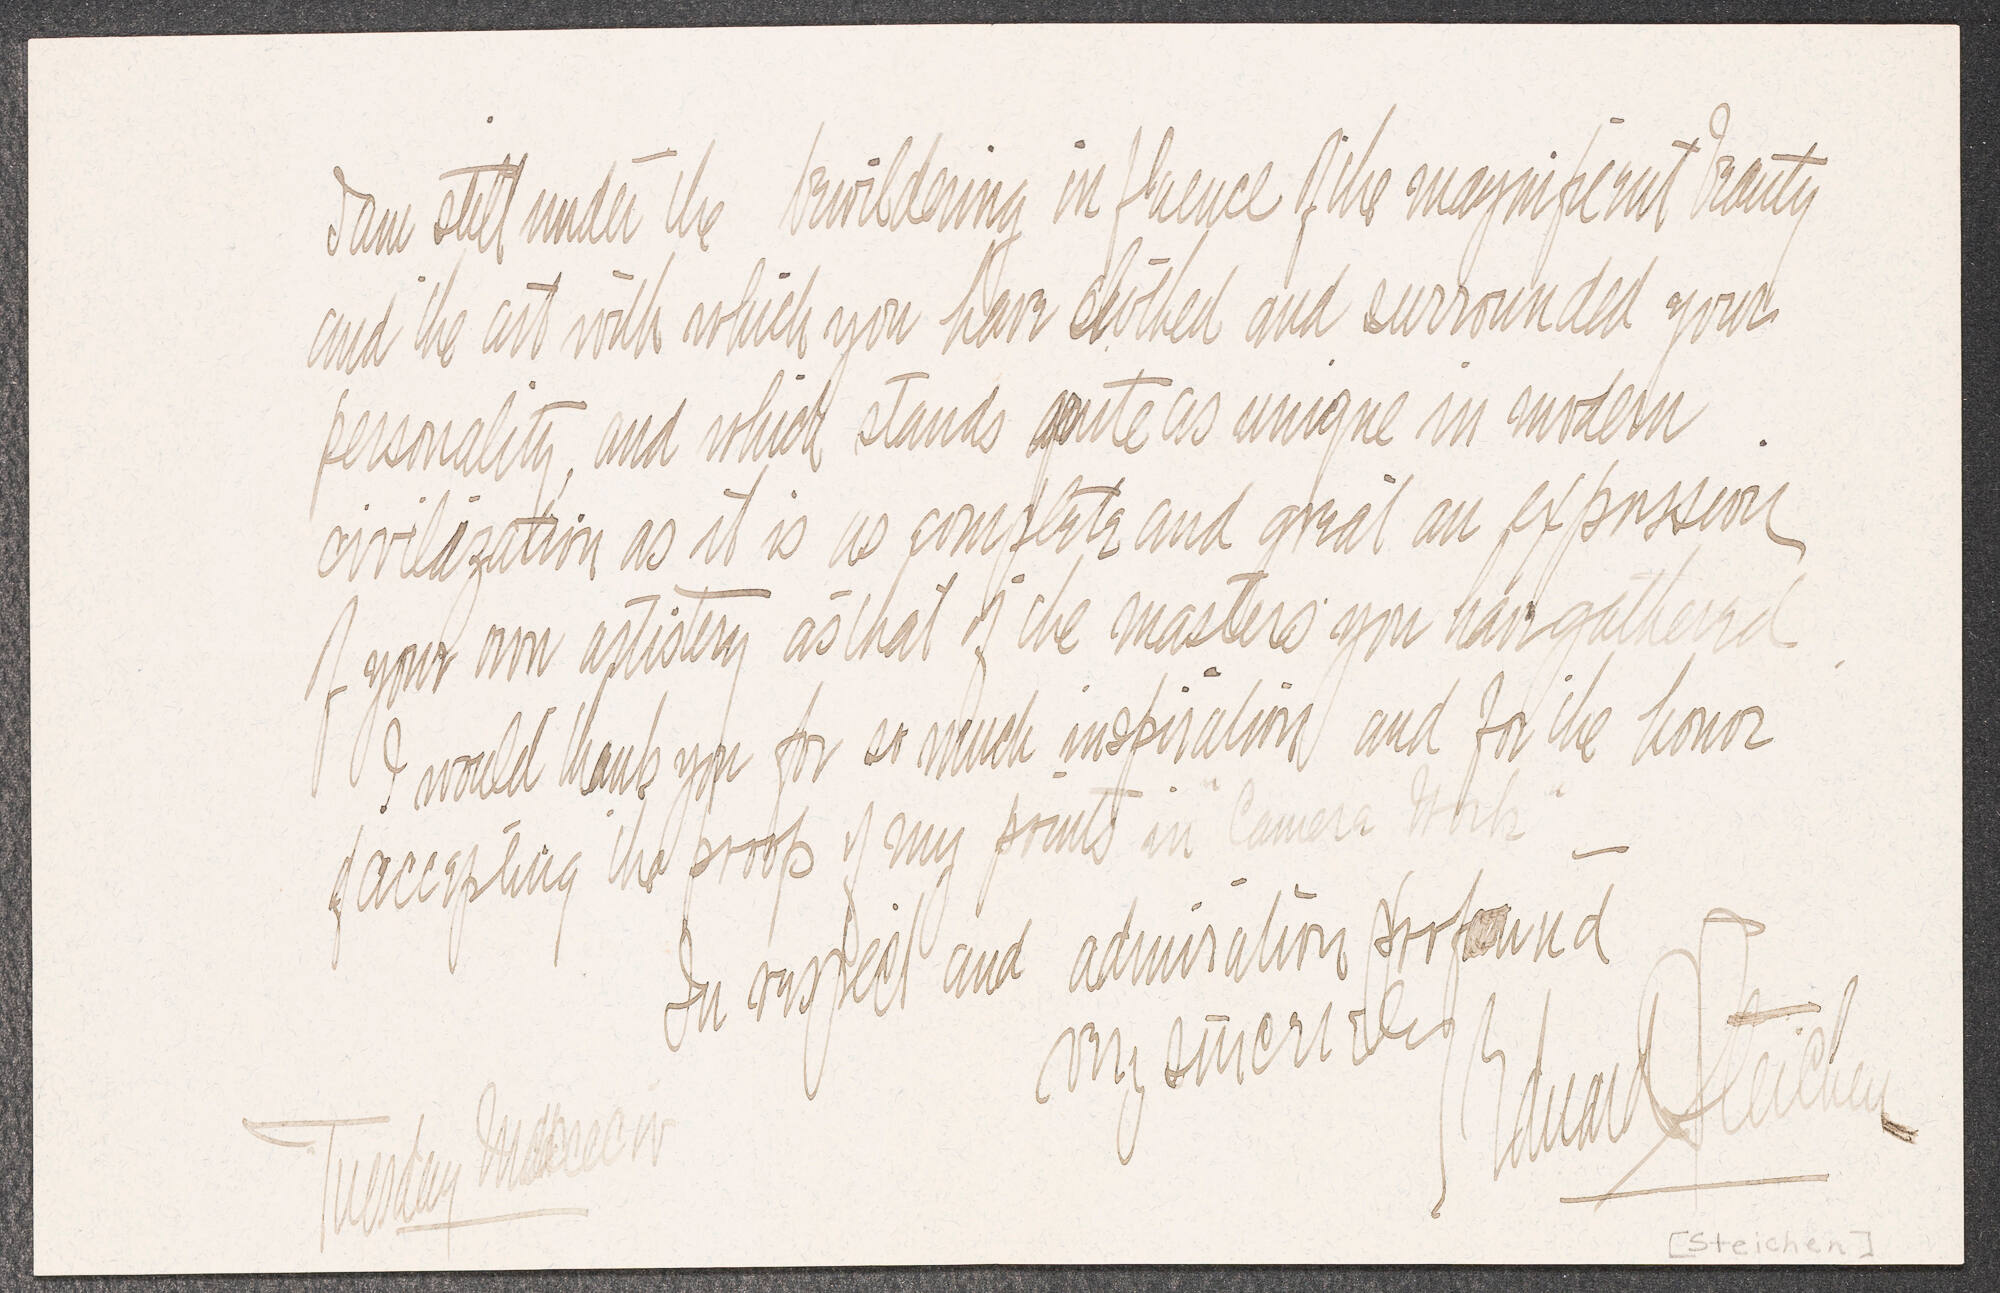 I am still under the bewildering influence of the magnificent beauty
and the art with which you have clothed and surrounded your
personality, and which stands quite as unique in modern
civilization as it is as complete and great an expression
of your own artistery as that of the masters you have gathered.
I would thank you for so much inspiration and for the honor
of accepting the proofs of my prints in "Camera Work" —
In respect and admiration profound
very sincerely
Eduard Steichen
Tuesday
[Steichen]